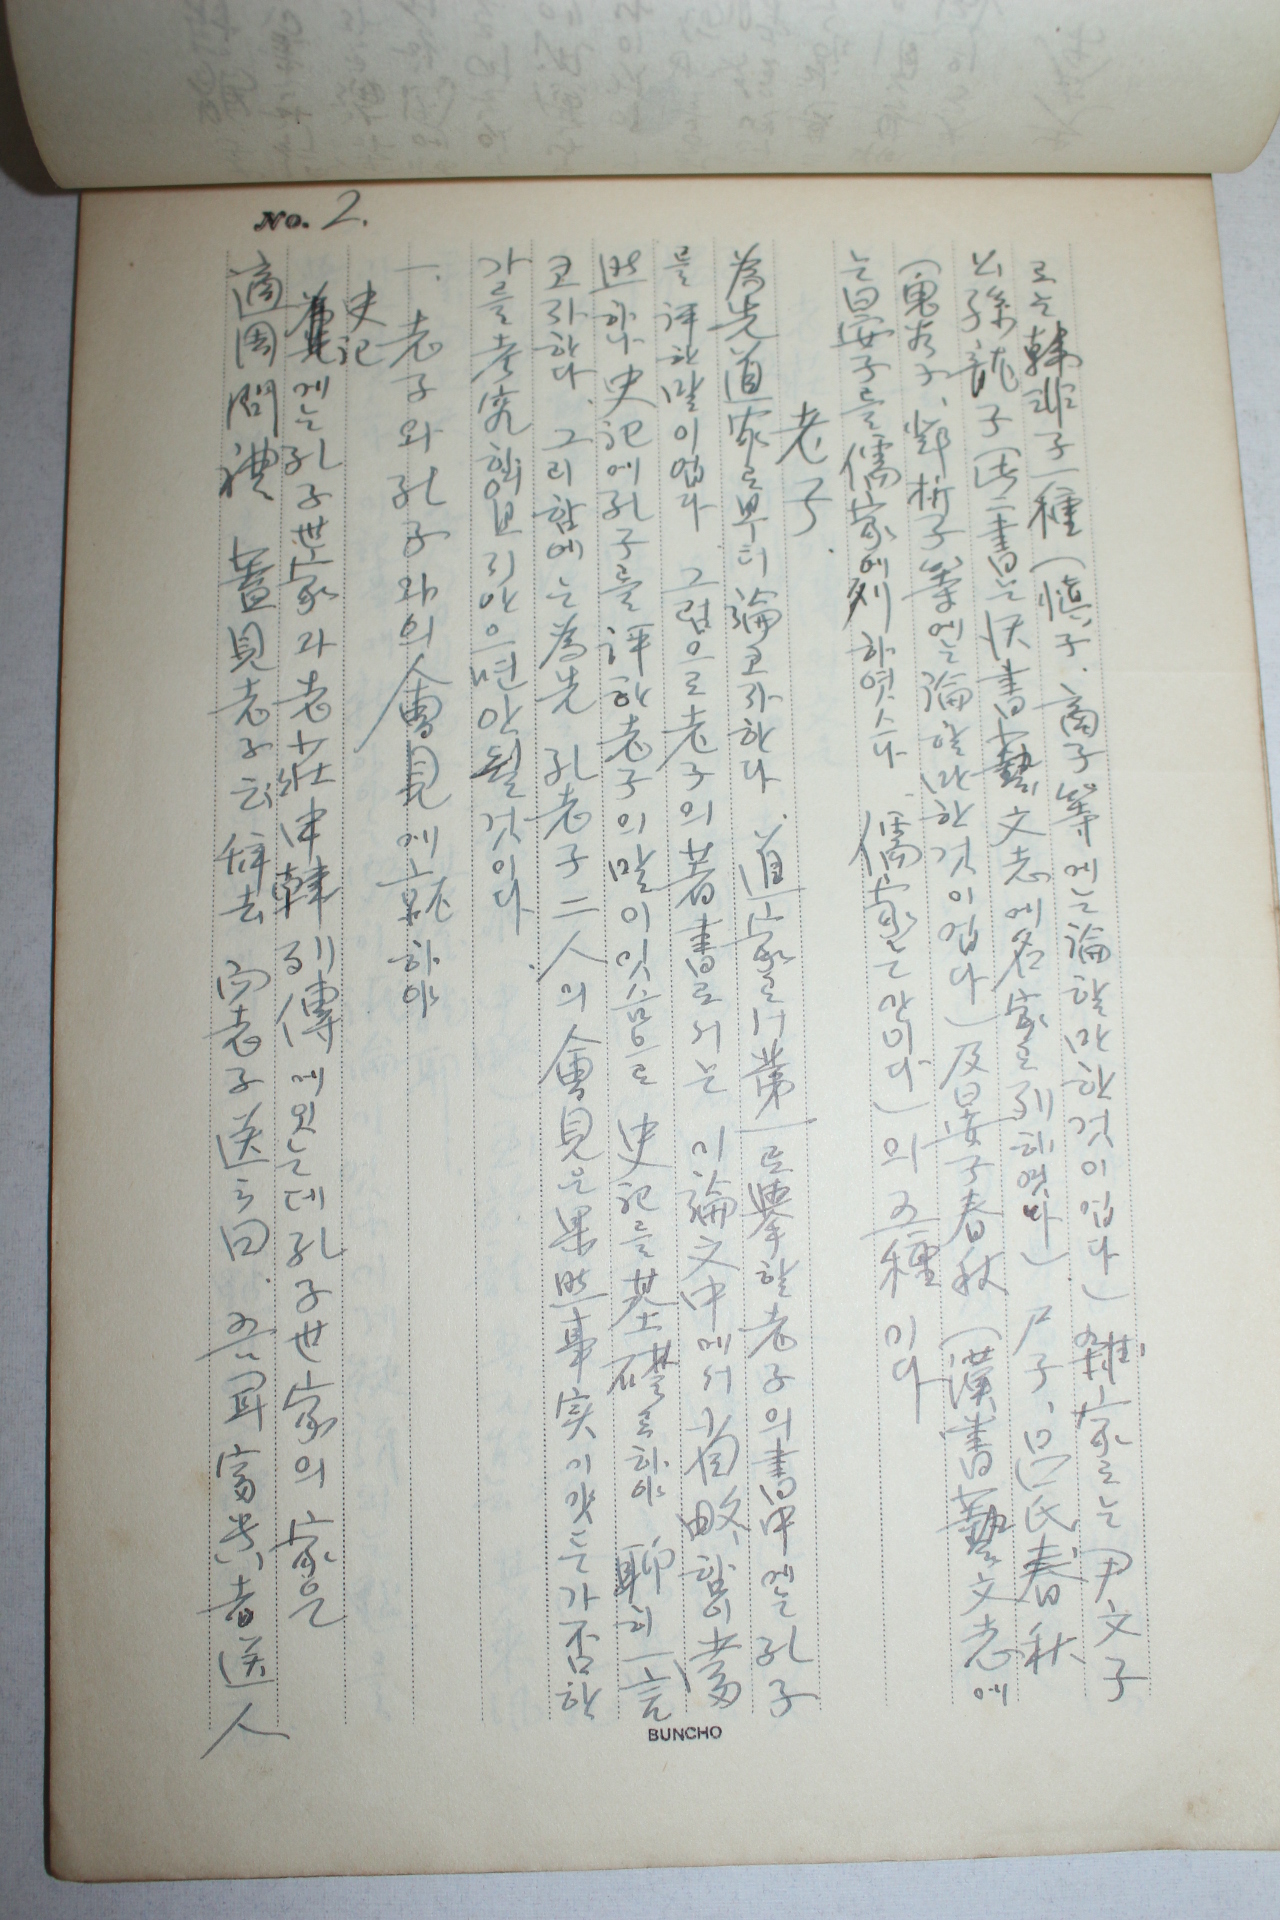 No. 2.
로는 韓非子一種(愼子、商子等에는 論할만한것이업다) 雜家로는 尹文子
公孫龍子(此二書는 漢書藝文志에 名家로 列하엿다) 尸子、呂氏春秋
(鬼谷子、鄧析子等에는 論할만한것이업다) 及晏子春秋(漢書藝文志에
는 晏子를 儒家에 列하엿스나 儒家는 안이다)의 五種이다
老子.
爲先 道家로부터 論코자한다. 道家로서 第一로 擧할 老子의 書中에는 孔子
를 評한말이업다 그럼으로 老子의 著書로서는 이論文中에서 省略함이 當
然하나 史記에 孔子를 評한 老子의말이잇슴으로 史記를 基礎로하야 聊히 一言
코자한다. 그리함에는 爲先 孔老子 二人의 會見은 果然事実이갓는가 否한
가를 考究함업시안으면 안될것이다.
一. 老子와 孔子와의 會見에 就하야
史記
舊見에는 孔子世家라 老莊申韓列傳에잇는데 孔子世家의 家은
適周問禮 蓋見老子云 辞去 而老子送之曰. 吾聞富貴者送人
BUNCHO